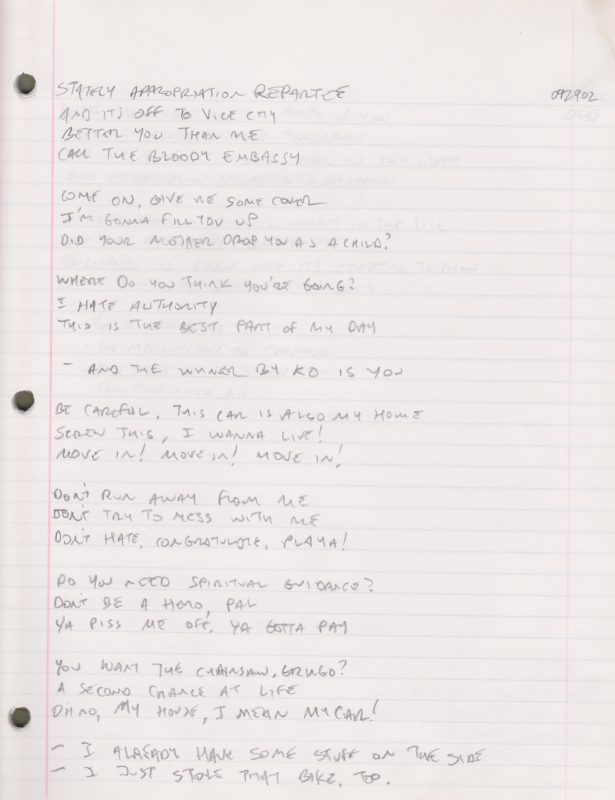 STATELY APPROPRIATION REPARTEE 092902
AND IT'S OFF TO VICE CITY OLD
BETTER YOU THAN ME
CALL THE BLOODY EMBASSY
COME ON, GIVE ME SOME COVER
I'M GONNA FILL YOU UP
DID YOUR MOTHER DROP YOU AS A CHILD?
WHERE DO YOU THINK YOU'RE GOING?
I HATE AUTHORITY
THIS IS THE BEST PART OF MY DAY
- AND THE WINNER BY KO IS YOU
BE CAREFUL, THIS CAR IS ALSO MY HOME
SCREW THIS, I WANNA LIVE!
MOVE IN! MOVE IN! MOVE IN!
DON'T RUN AWAY FROM ME
DON'T TRY TO MESS WITH ME
DON'T HATE, CONGRATULATE, PLAYA!
DO YOU NEED SPIRITUAL GUIDANCE?
DON'T BE A HERO, PAL
YA PISS ME OFF, YA GOTTA PAY
YOU WANT THE CHAINSAW, GRINGO?
A SECOND CHANCE AT LIFE
OH NO, MY HOUSE, I MEAN MY CAR!
- I ALREADY HAVE SOME STUFF ON THE SIDE
- I JUST STOLE THAT BIKE, TOO.